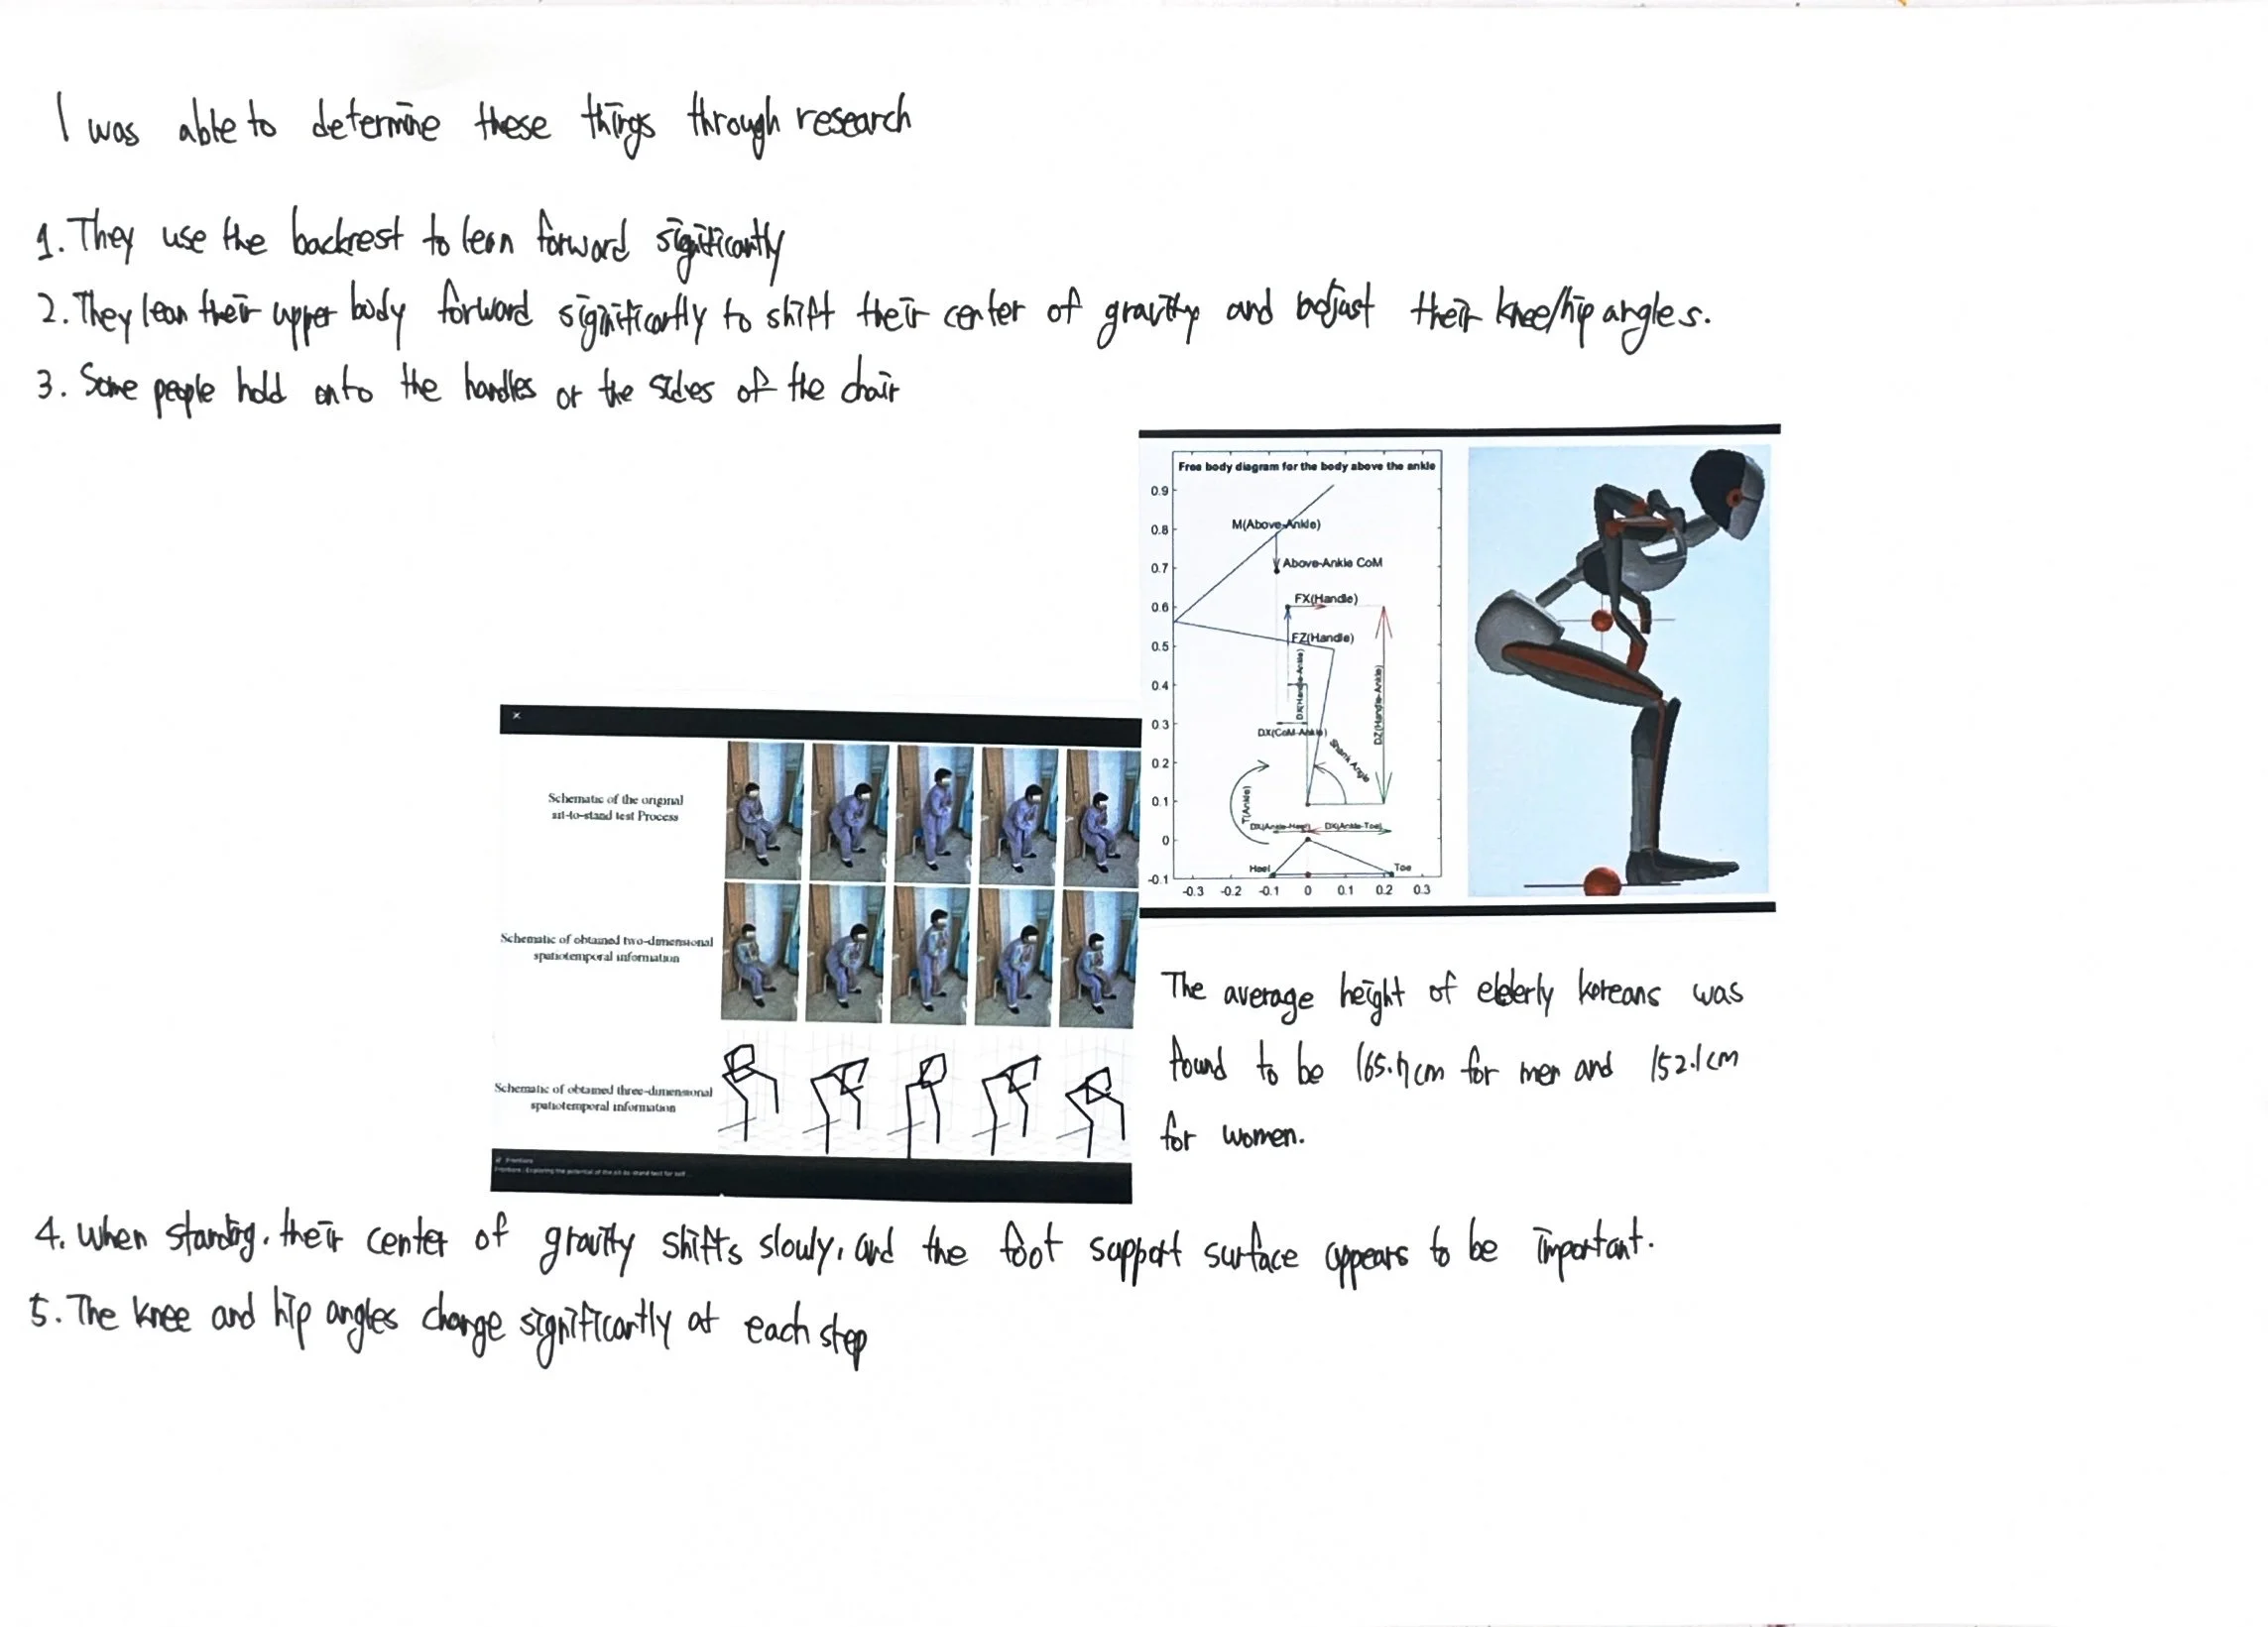 I was able to determine these things through research
1. They use the backrest to lean forward significantly
2. They lean their upper body forward significantly to shift their center of gravity and adjust their knee/hip angles.
3. Some people hold onto the handles or the sides of the chair
Free body diagram for the body above the ankle
0.9
M(Above-Ankle)
0.8
Above-Ankle CoM
0.7
FX(Handle)
0.6
FZ(Handle)
0.5
DX(Handle-Ankle)
DZ(Handle-Ankle)
0.4
0.3
DX(CoM-Ankle)
Shank Angle
0.2
T(Ankle)
0.1
DX(Ankle-Heel) DX(Ankle-Toe)
0
Heel Toe
-0.1
-0.3 -0.2 -0.1 0 0.1 0.2 0.3
×
Schematic of the original
sit-to-stand test Process
Schematic of obtained two-dimensional
spatiotemporal information
Schematic of obtained three-dimensional
spatiotemporal information
Frontiers
Frontiers | Exploring the potential of the sit-to-stand test for self ...
The average height of elderly koreans was
found to be 165.7cm for men and 152.1cm
for women.
4. When standing, their center of gravity shifts slowly, and the foot support surface appears to be important.
5. The knee and hip angles change significantly at each step